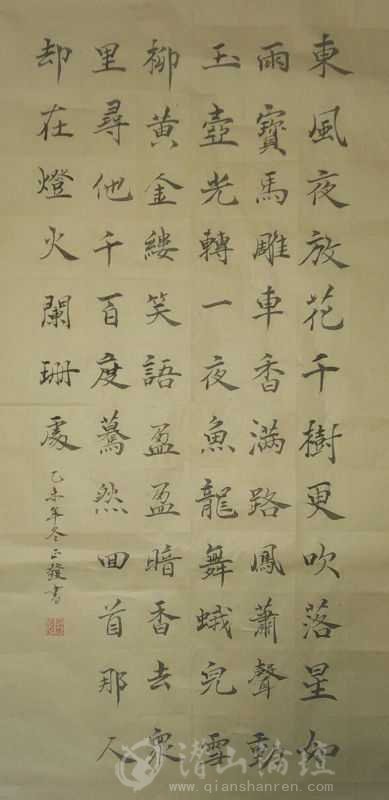 東風夜放花千樹更吹落星如
雨寶馬雕車香滿路鳳蕭聲動
玉壺光轉一夜魚龍舞蛾兒雪
柳黃金縷笑語盈盈暗香去衆
里尋他千百度驀然回首那人
却在燈火闌珊處
乙未年冬正書
潜山論壇
www.qianshanren.com